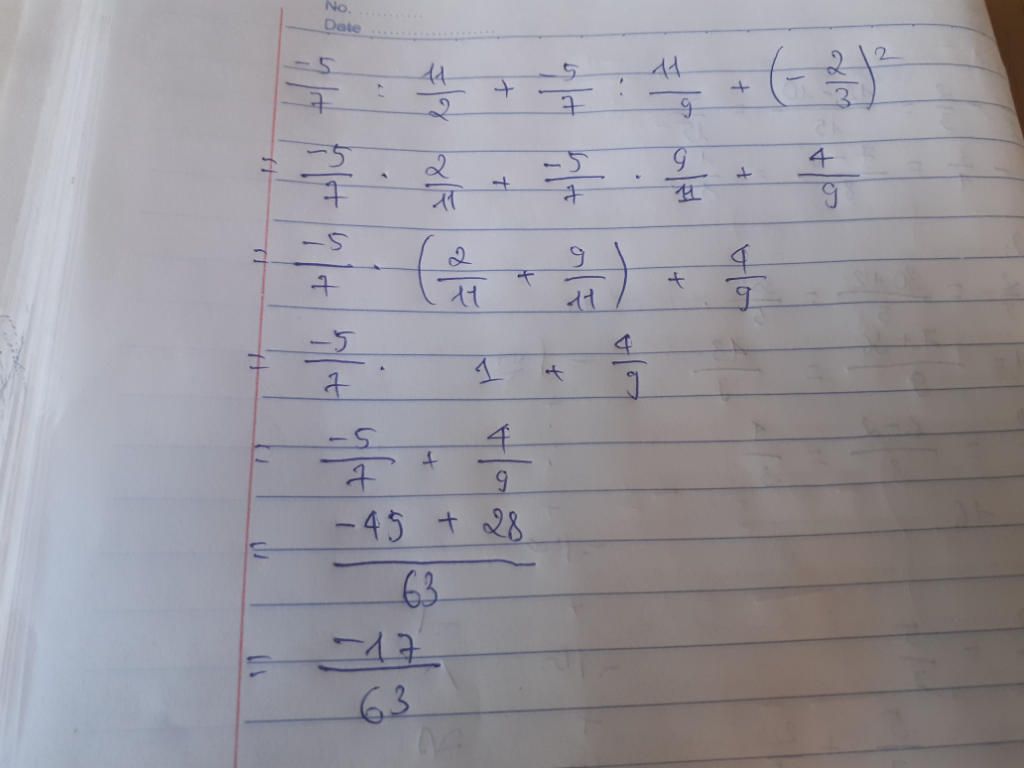 No. ............
Date ....................
-5/7 : 11/2 + -5/7 : 11/9 + (- 2/3)²
= -5/7 . 2/11 + -5/7 . 9/11 + 4/9
= -5/7 . (2/11 + 9/11) + 4/9
= -5/7 . 1 + 4/9
= -5/7 + 4/9
= -45 + 28/63
= -17/63